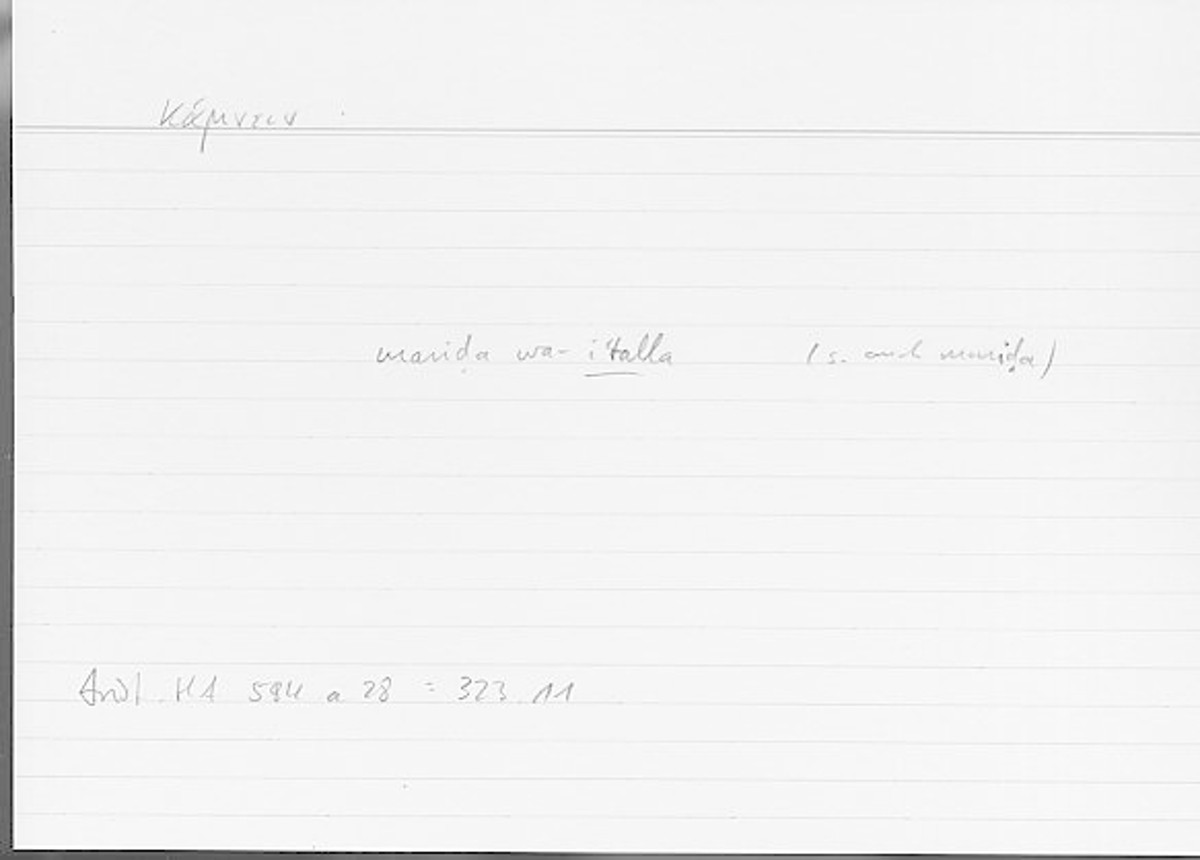 κάμνειν
mariḍa wa-i'talla (s. auch mariḍa)
Arist. HA 594 a 28 = 323.11